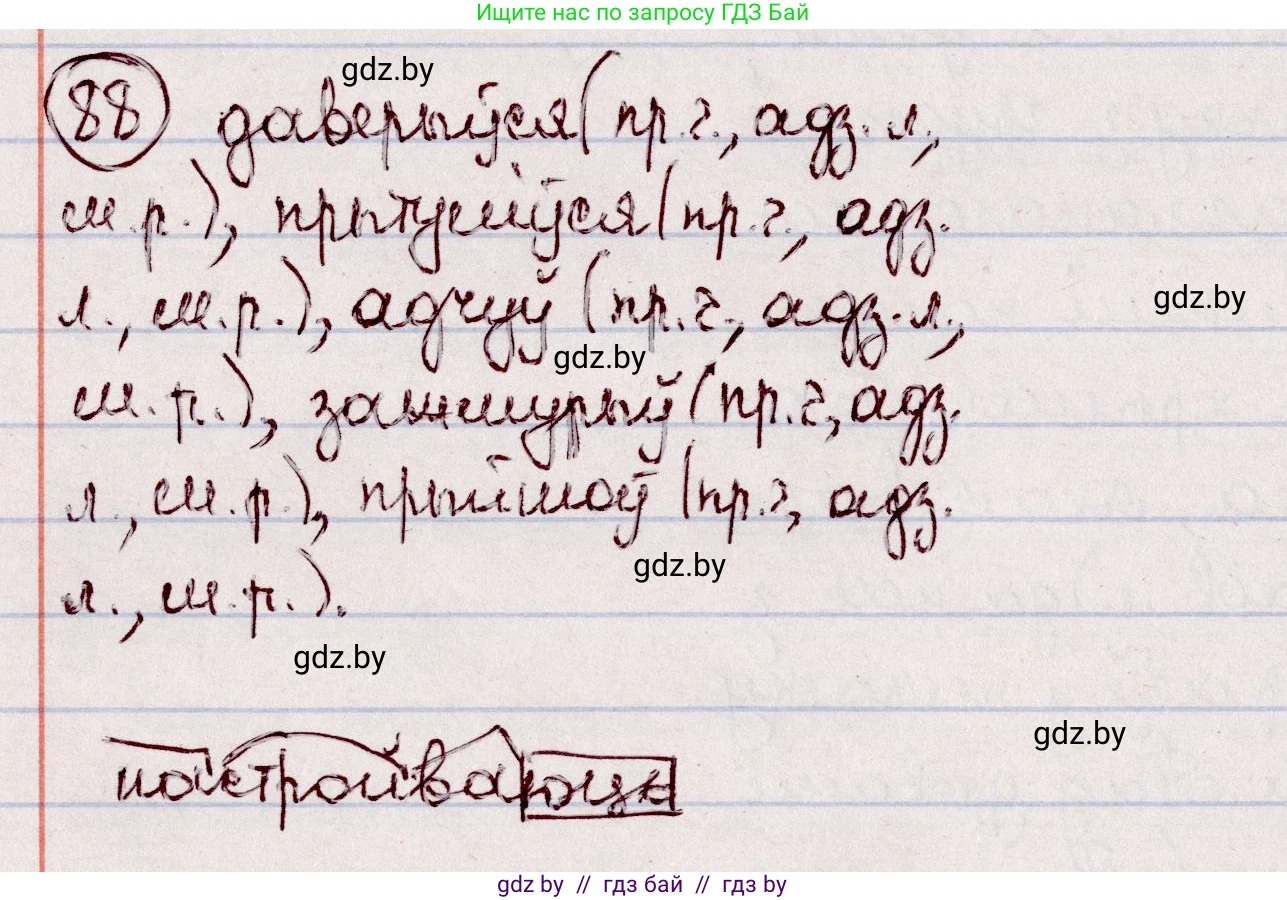 Ищите нас по запросу ГДЗ Бай
gdz.by
88 даверыўся (пр.г., адз. л.,
м.р.), прытуліўся (пр.г., адз.
gdz.by
л., м.р.), адчуў (пр.г., адз. л.,
gdz.by
м.р.), зажмурыў (пр.г., адз.
л., м.р.), прыйшоў (пр.г., адз.
gdz.by
л., м.р.).
gdz.by
gdz.by
настройваюць
gdz by // гдз бай // гдз by